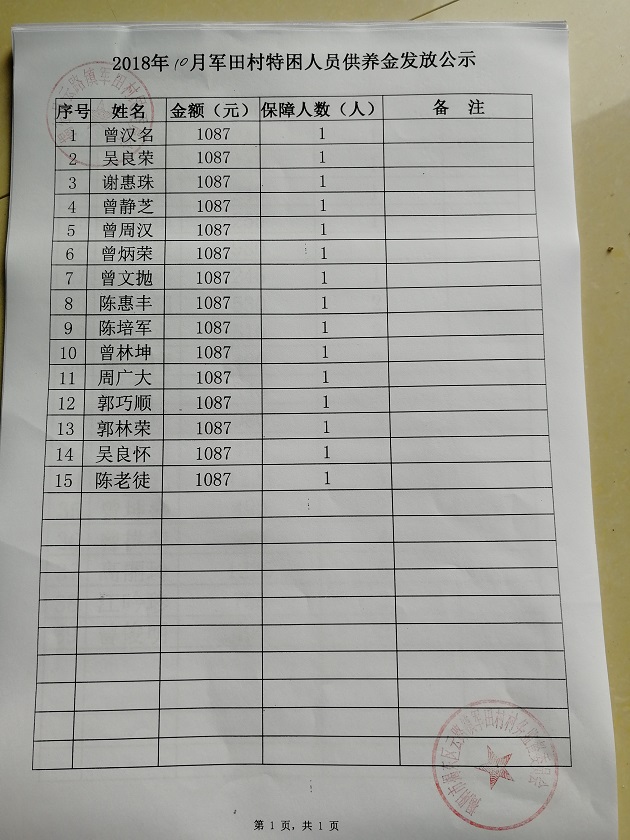 2018年10月军田村特困人员供养金发放公示
序号 姓名 金额（元） 保障人数（人） 备 注
1 曾汉名 1087 1
2 吴良荣 1087 1
3 谢惠珠 1087 1
4 曾静芝 1087 1
5 曾周汉 1087 1
6 曾炳荣 1087 1
7 曾文抛 1087 1
8 陈惠丰 1087 1
9 陈培军 1087 1
10 曾林坤 1087 1
11 周广大 1087 1
12 郭巧顺 1087 1
13 郭林荣 1087 1
14 吴良怀 1087 1
15 陈老徒 1087 1
第 1 页，共 1 页